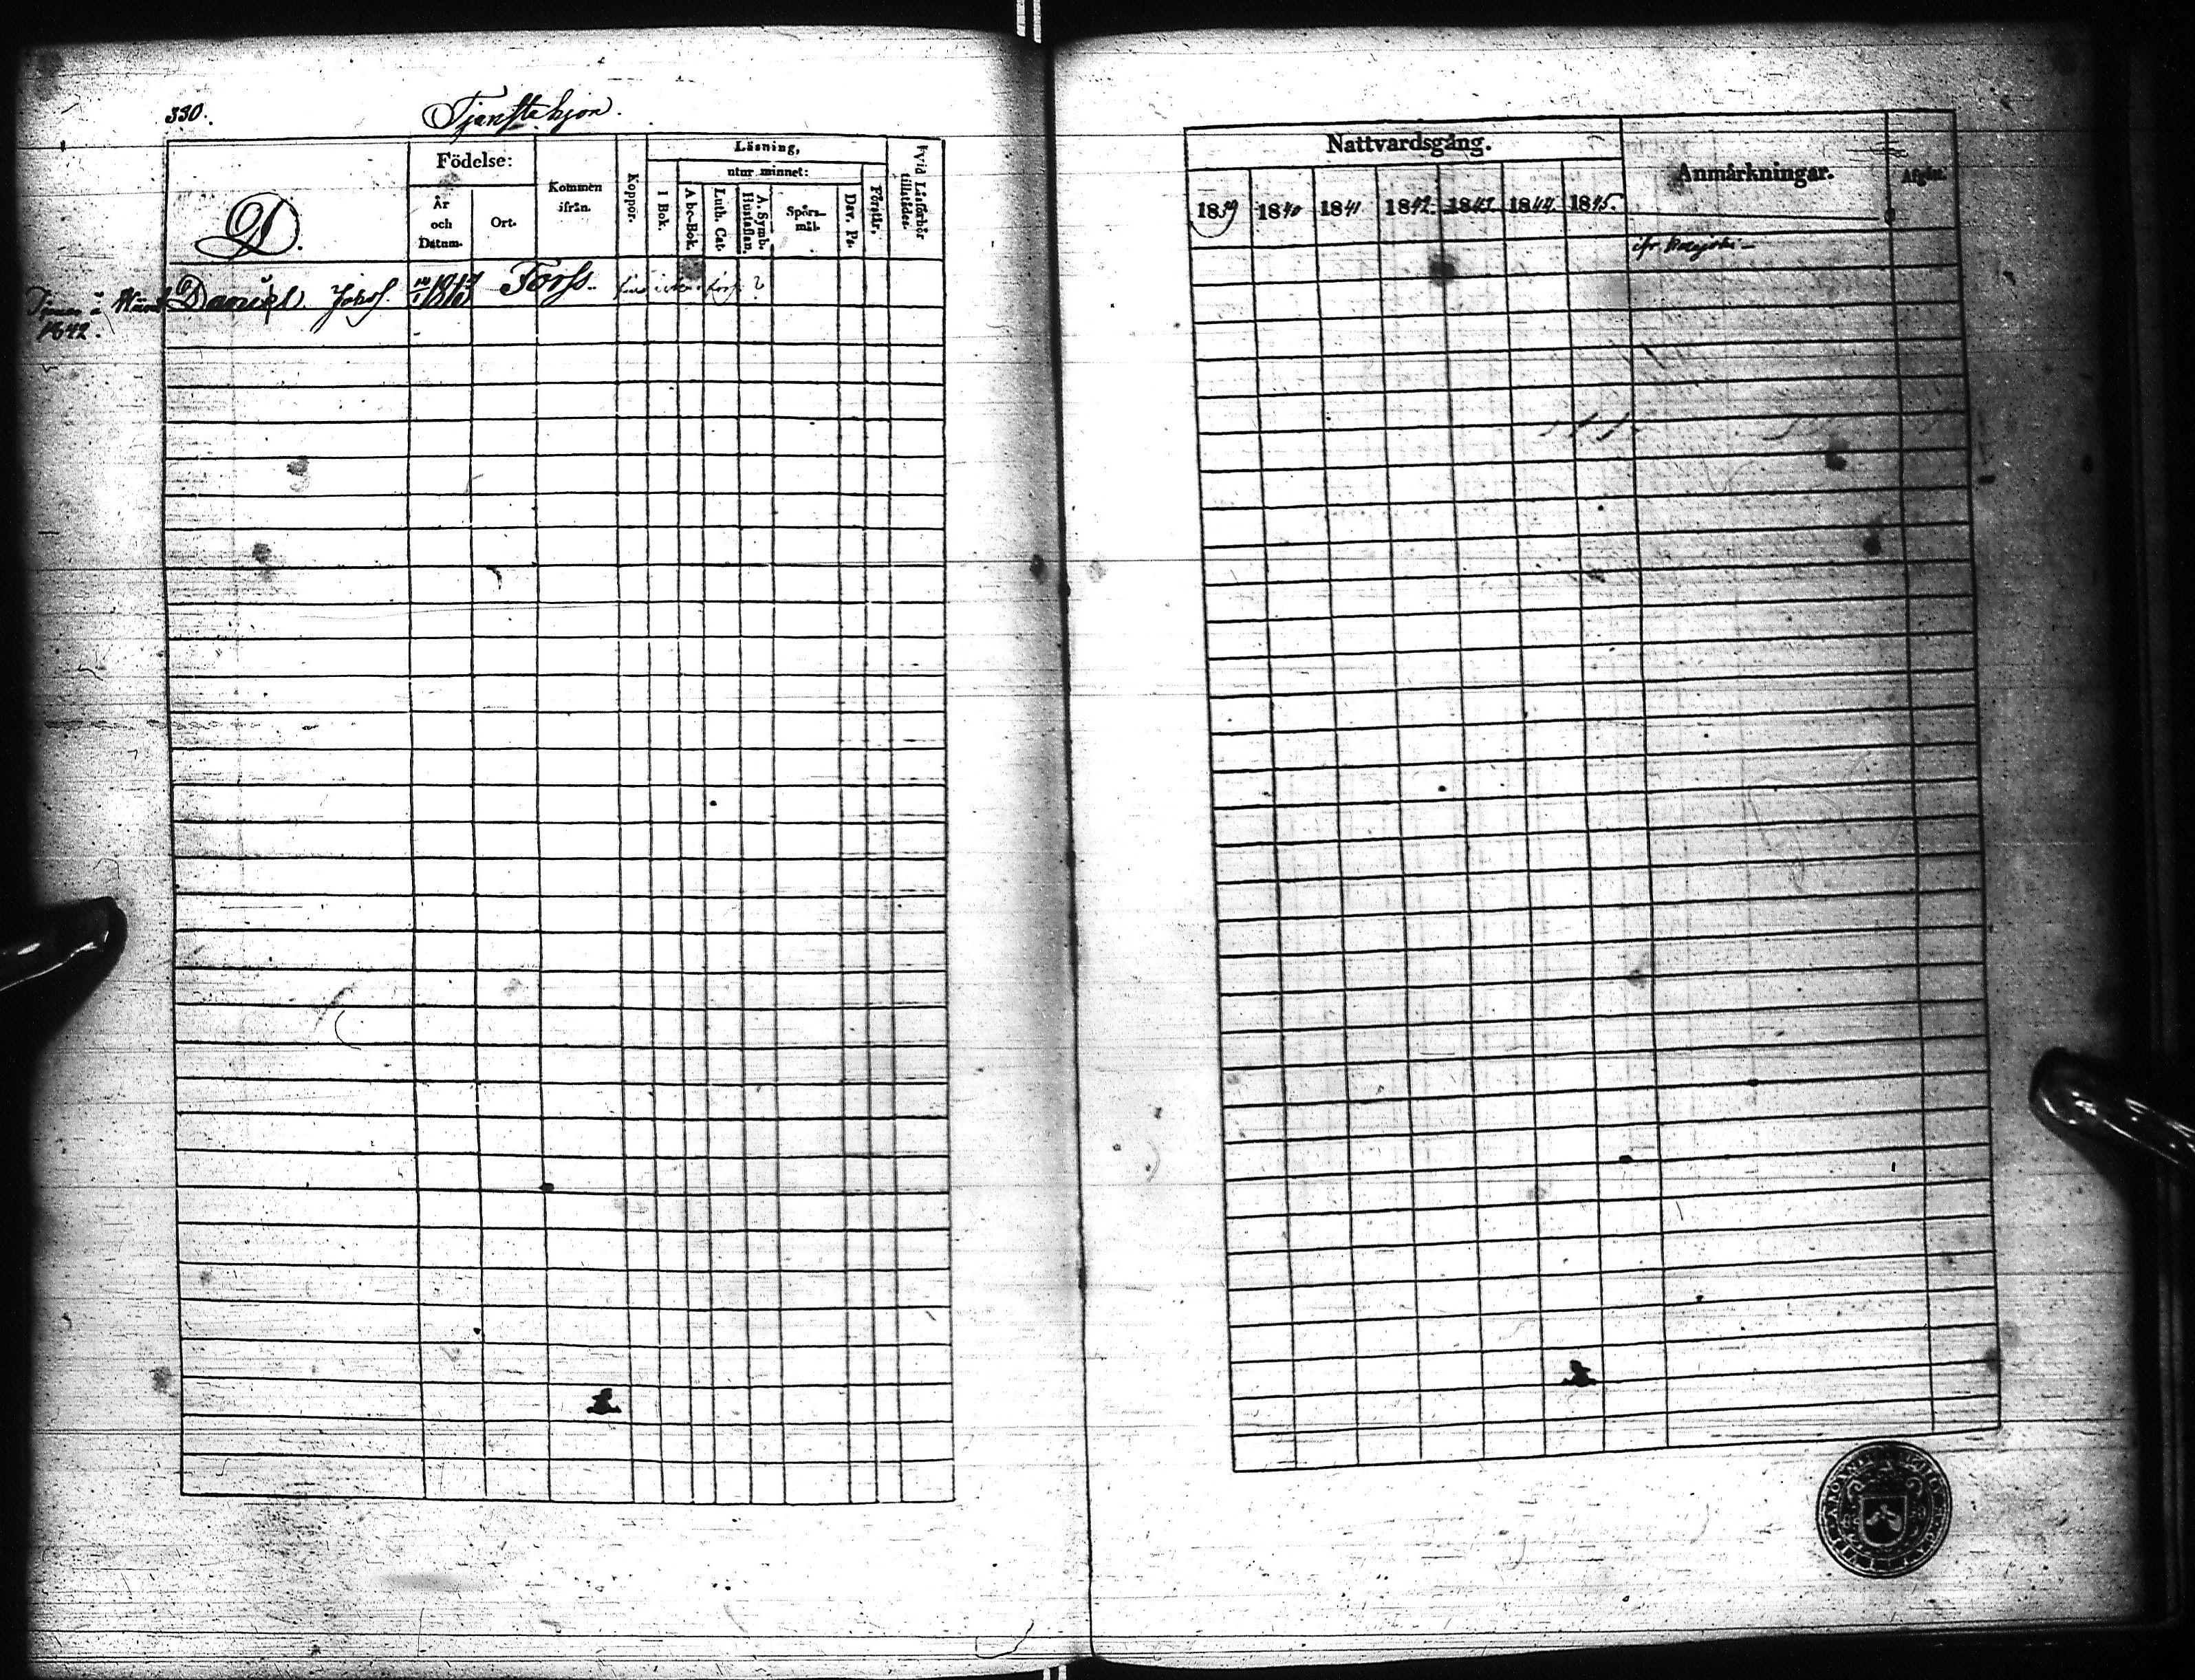 330.
Tjenstehjon.
D.
Födelse:
År och Datum.
Ort.
Kommen ifrån.
Koppor.
Läsning,
utur minnet:
I Bok.
Abc-Bok.
Luth. Cat.
A. Symb. Hustaflan.
Spörsmål.
Dav. Ps.
Förstår,
hvid Läsförhör tillstädes.
Daniel Johns. Torss.
1842.
Nattvardsgång.
Anmärkningar.
Afgått.
1839 1840 1841 1842 1843 1844 1845.